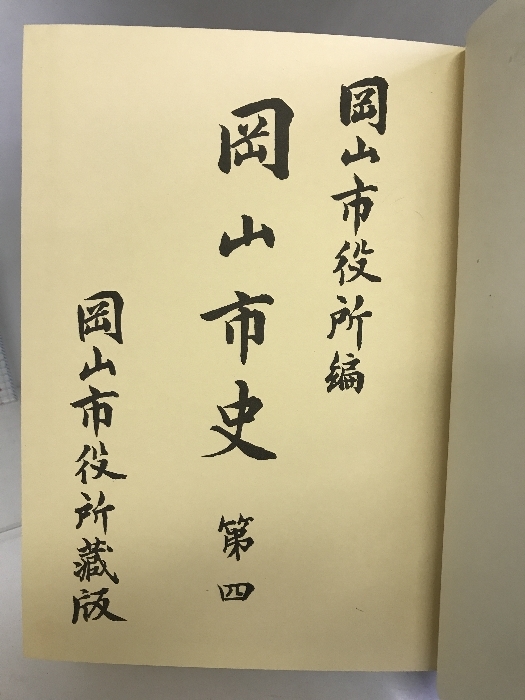 岡山市役所編
岡山市史 第四
岡山市役所藏版